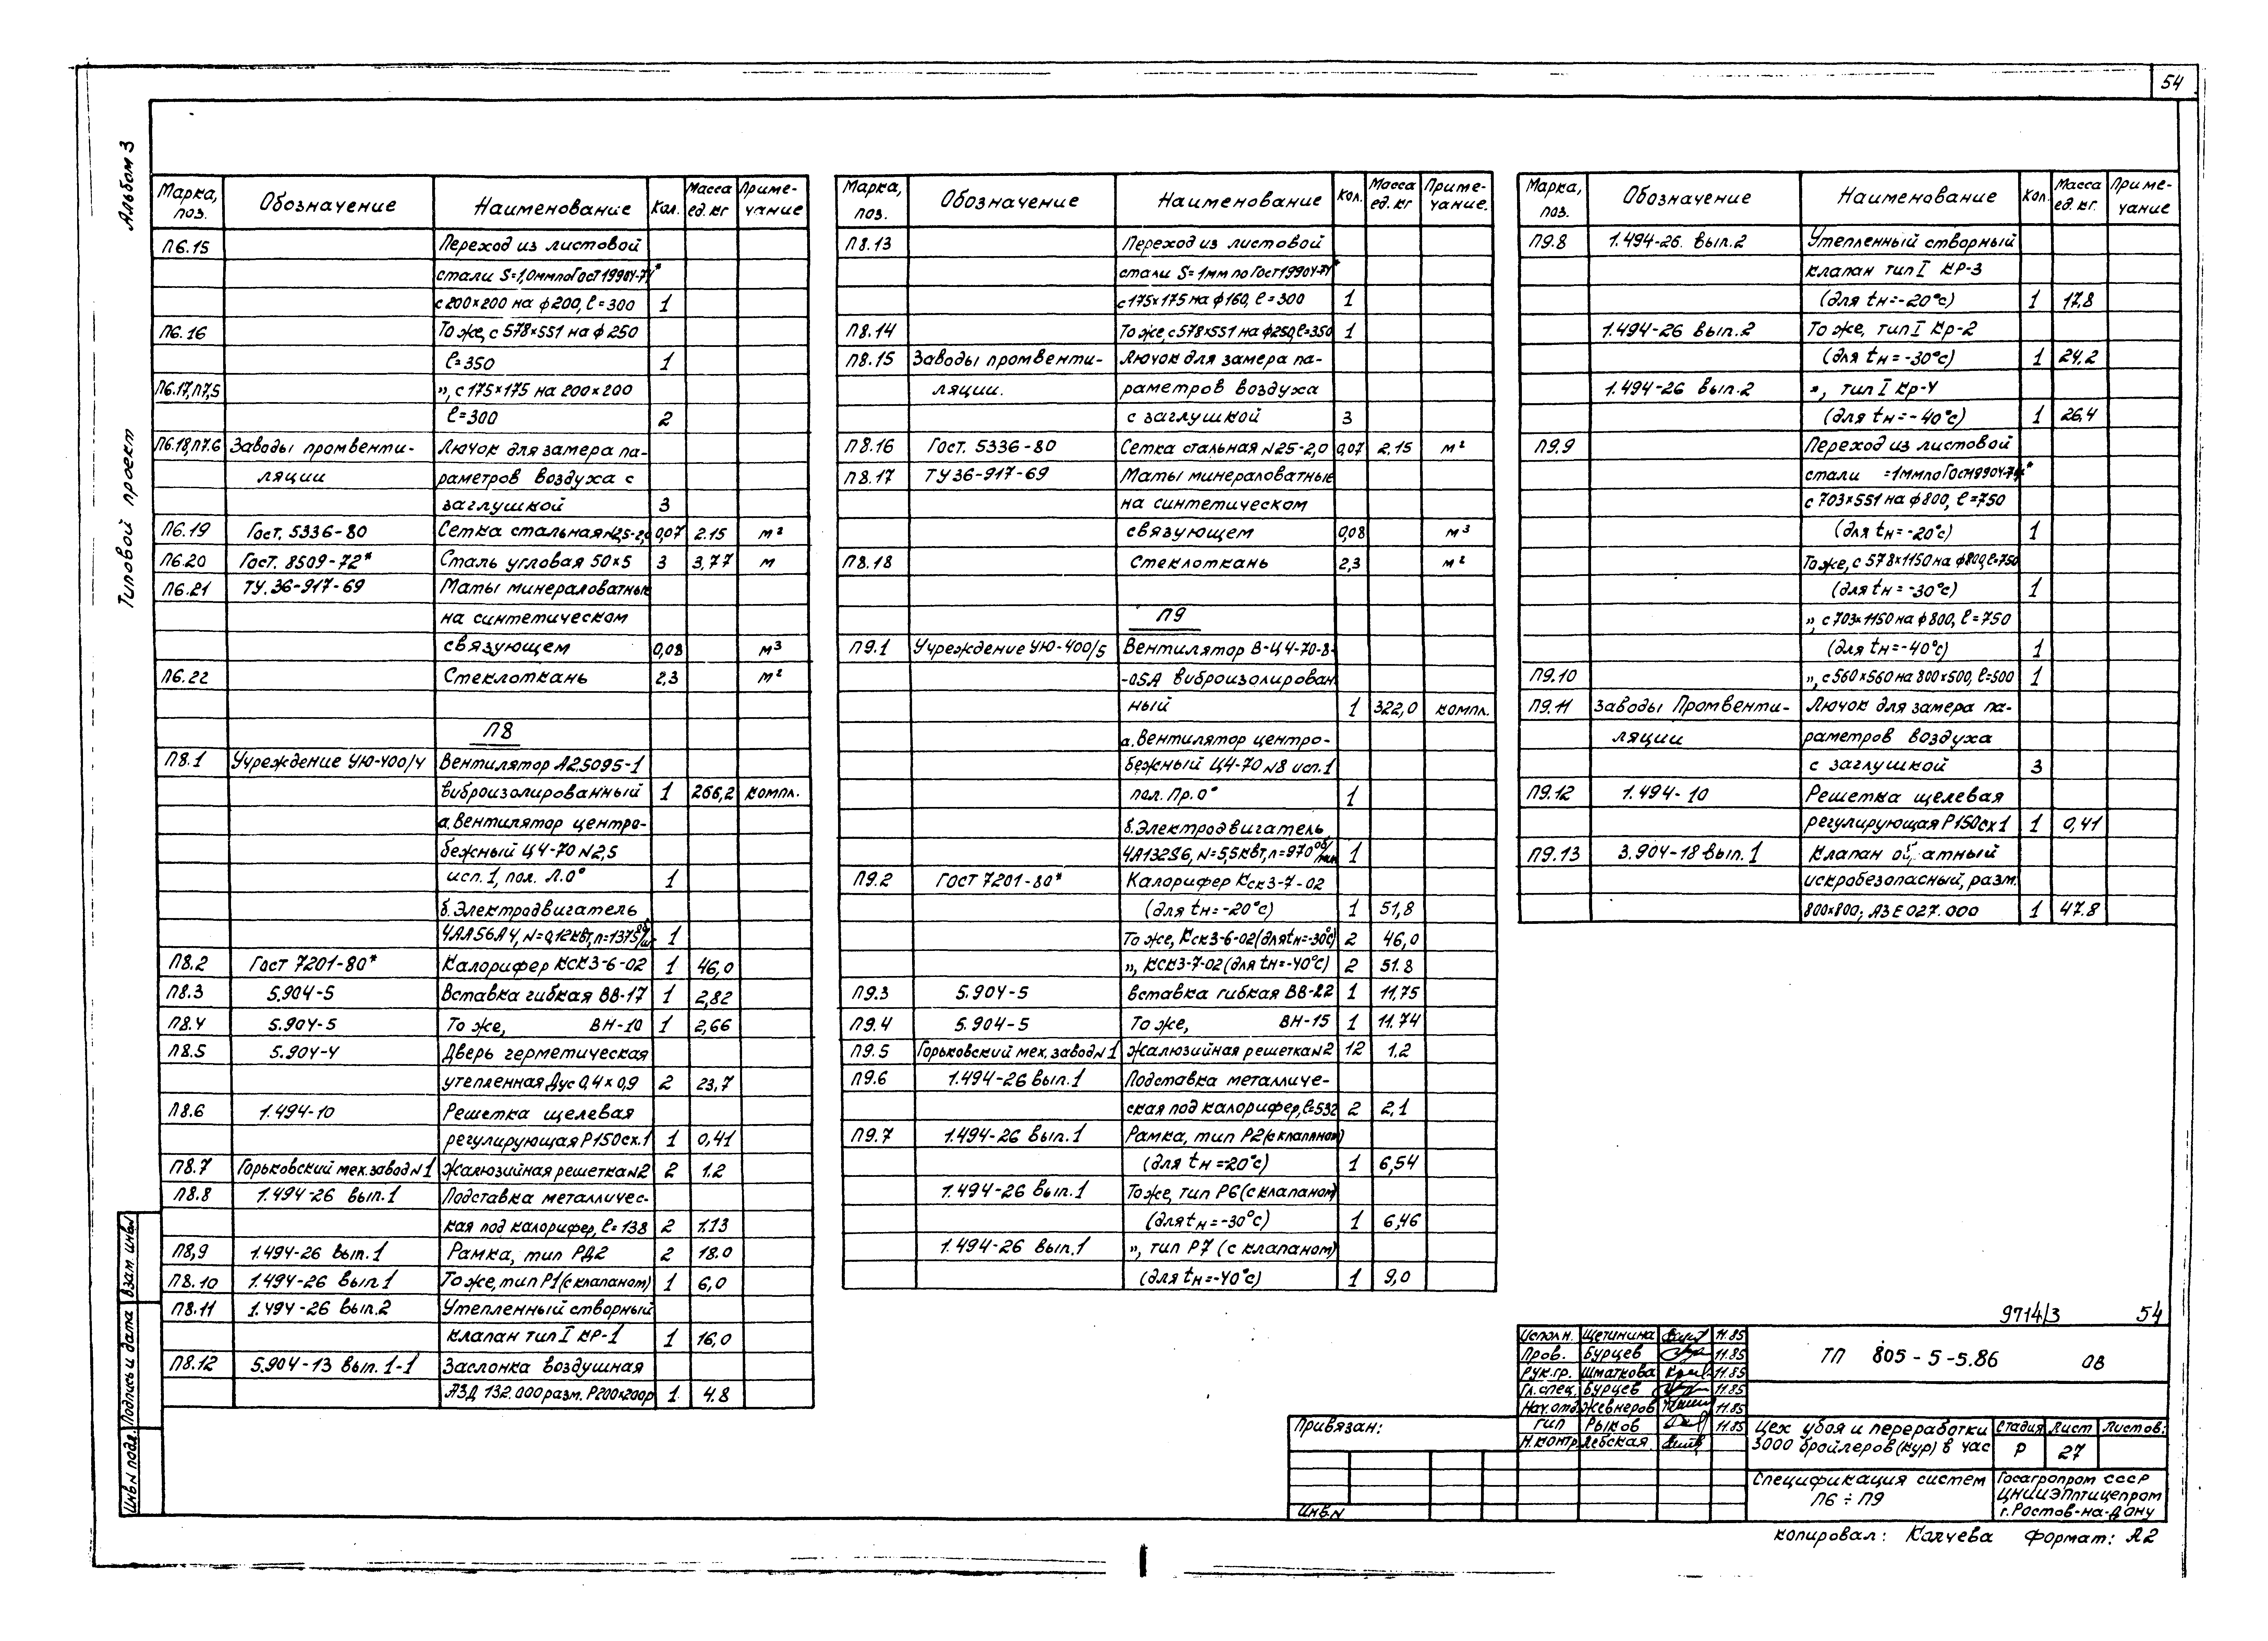 54
Альбом 3
Типовой проект
Марка, поз. Обозначение Наименование Кол. Масса ед. кг Примечание
П6.15 Переход из листовой
стали S=1,0мм по Гост 19904-74*
с 200×200 на ф200, ℓ=300 1
П6.16 То же, с 578×551 на ф 250
ℓ=350 1
П6.17, П7,5 „, с 175×175 на 200×200
ℓ=300 2
П6.18, П7.6 Заводы промвенти- Лючок для замера па-
ляции раметров воздуха с
заглушкой 3
П6.19 Гост. 5336-80 Сетка стальная N25-2,0 0,07 2.15 м²
П6.20 Гост. 8509-72* Сталь угловая 50×5 3 3,77 м
П6.21 ТУ. 36-917-69 Маты минераловатные
на синтетическом
связующем 0,08 м³
П6.22 Стеклоткань 2,3 м²
П8
П8.1 Учреждение УЮ-400/4 Вентилятор А2,5095-1
виброизолированный 1 266,2 компл.
а. Вентилятор центро-
бежный Ц4-70 N2,5
исп. 1, пол. Л.0° 1
б. Электродвигатель
4АА56А4, N=0,12квт, n=1375 об/ 1
П8.2 Гост 7201-80* Калорифер КСК3-6-02 1 46,0
П8.3 5.904-5 Вставка гибкая ВВ-17 1 2,82
П8.4 5.904-5 То же, ВН-10 1 2,66
П8.5 5.904-4 Дверь герметическая
утепленная Дус 0,4×0,9 2 23,7
П8.6 1.494-10 Решетка щелевая
регулирующая Р150 сх.1 1 0,41
П8.7 Горьковский мех. завод N1 Жалюзийная решетка N2 2 1.2
П8.8 1.494-26 вып.1 Подставка металличес-
кая под калорифер, ℓ=138 2 1.13
П8,9 1.494-26 вып.1 Рамка, тип РД2 2 18.0
П8.10 1.494-26 вып.1 То же, тип Р1 (с клапаном) 1 6,0
П8.11 1.494-26 вып.2 Утепленный створный
клапан тип I КР-1 1 16,0
П8.12 5.904-13 вып. 1-1 Заслонка воздушная
АЗД 132.000 разм. Р200×200р 1 4.8
Марка, поз. Обозначение Наименование Кол. Масса ед. кг Примечание.
П8.13 Переход из листовой
стали S=1мм по Гост 19904-74*
с 175×175 на ф160, ℓ=300 1
П8.14 То же, с 578×551 на ф250, ℓ=350 1
П8.15 Заводы промвенти- Лючок для замера па-
ляции. раметров воздуха
с заглушкой 3
П8.16 Гост. 5336-80 Сетка стальная N25-2,0 0,07 2,15 м²
П8.17 ТУ 36-917-69 Маты минераловатные
на синтетическом
связующем 0,08 м³
П8.18 Стеклоткань 2,3 м²
П9
П9.1 Учреждение УЮ-400/5 Вентилятор В-Ц4-70-8-
-05А виброизолирован
ный 1 322,0 компл.
а. Вентилятор центро-
бежный Ц4-70 N8 исп.1
пол. Пр.0° 1
б. Электродвигатель
4А132S6, N=5,5квт, n=970 об/мин 1
П9.2 ГОСТ 7201-80* Калорифер Кск3-7-02
(для tн=-20°с) 1 51,8
То же, Кск3-6-02 (для tн=-30°с) 2 46,0
„, КСК3-7-02 (для tн=-40°с) 2 51.8
П9.3 5.904-5 Вставка гибкая ВВ-22 1 11,75
П9.4 5.904-5 То же, ВН-15 1 11.74
П9.5 Горьковский мех. завод N1 Жалюзийная решетка N2 12 1.2
П9.6 1.494-26 вып.1 Подставка металличе-
ская под калорифер, ℓ=532 2 2,1
П9.7 1.494-26 вып.1 Рамка, тип Р2 (с клапаном)
(для tн=-20°с) 1 6,54
1.494-26 вып.1 То же, тип Р6 (с клапаном)
(для tн=-30°с) 1 6,46
1.494-26 вып.1 „, тип Р7 (с клапаном)
(для tн=-40°с) 1 9,0
Марка, поз. Обозначение Наименование Кол. Масса ед. кг. Примечание
П9.8 1.494-26. вып.2 Утепленный створный
клапан тип I КР-3
(для tн=-20°с) 1 17.8
1.494-26 вып.2 То же, тип I Кр-2
(для tн=-30°с) 1 24,2
1.494-26 вып.2 „, тип I Кр-4
(для tн=-40°с) 1 26,4
П9.9 Переход из листовой
стали =1мм по Гост 19904-74*
с 703×551 на ф800, ℓ=750
(для tн=-20°с) 1
То же, с 578×1150 на ф800, ℓ=750
(для tн=-30°с) 1
„, с 703×1150 на ф800, ℓ=750
(для tн=-40°с) 1
П9.10 „, с 560×560 на 800×500, ℓ=500 1
П9.11 Заводы Промвенти- Лючок для замера па-
ляции раметров воздуха
с заглушкой 3
П9.12 1.494-10 Решетка щелевая
регулирующая Р150 сх1 1 0,41
П9.13 3.904-18 вып.1 Клапан об атный
искробезопасный, разм.
800×800; АЗЕ027.000 1 47.8
9714/3 54
Исполн. Щетинина 11.85
Пров. Бурцев 11.85
Рук.гр. Шматкова 11.85
Гл.спец. Бурцев 11.85
Нач.отд. Жевнеров 11.85
ГИП Рыков 11.85
Н.контр.
ТП 805-5-5.86 ОВ
Цех убоя и переработки
3000 бройлеров (кур) в час
Стадия Лист Листов:
Р 27
Спецификация систем
П6 ÷ П9
Госагропром СССР
ЦНИИЭПптицепром
г. Ростов-на-Дону
Привязан:
Инв.N
Копировал: Калчева Формат: А2
Взам. инв.N
Подпись и дата
Инв.N подл.